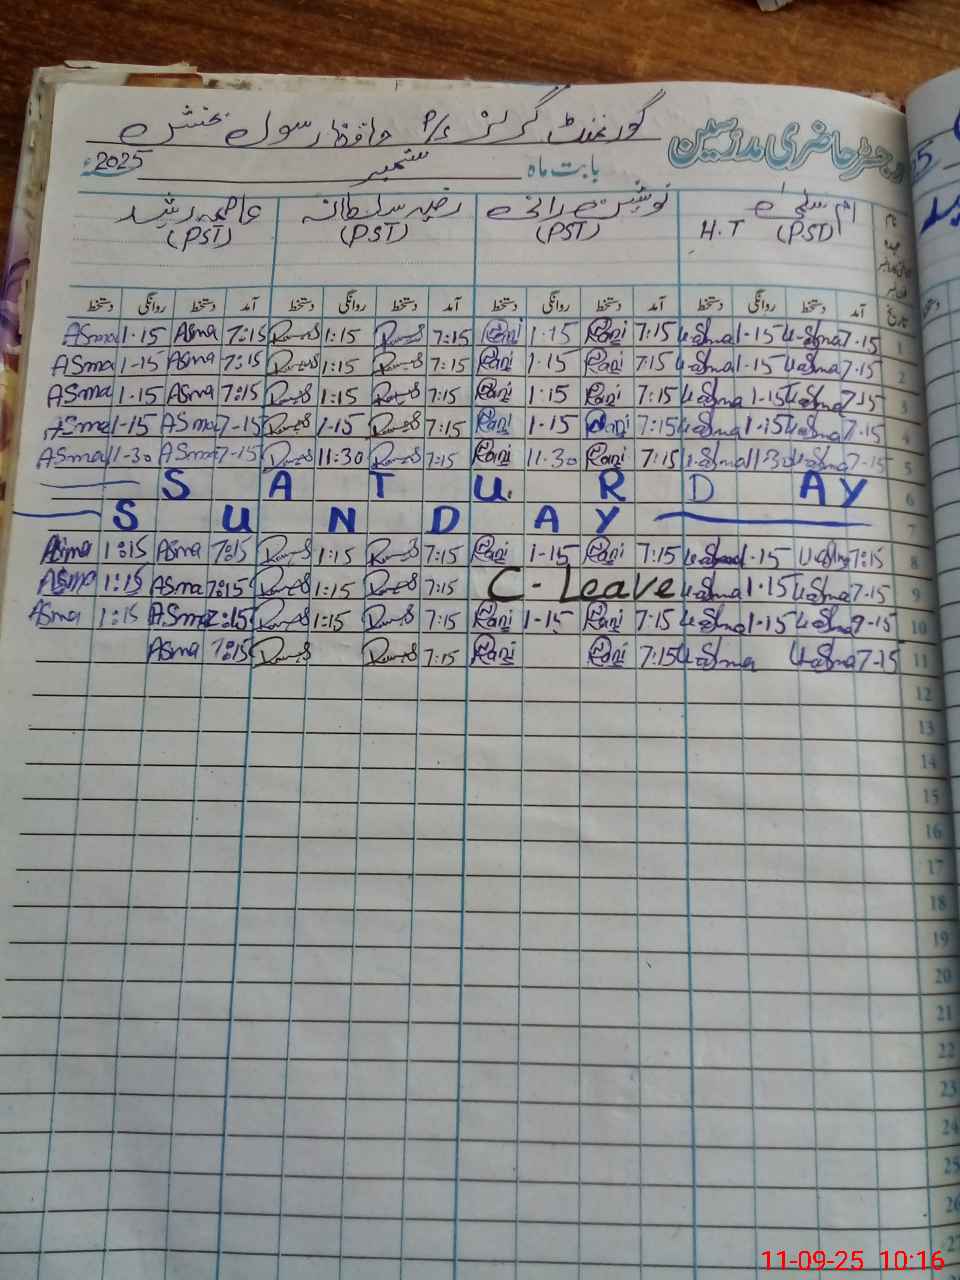 رجسٹر حاضری مدرسین گورنمنٹ گرلز P/S حافظ رسول بخش
بابت ماہ ستمبر 2025ء
ام سلمیٰ نوشین رانی رضیہ سلطانہ عاصمہ رشید
H.T (PST) (PST) (PST) (PST)
تاریخ آمد دستخط روانگی دستخط آمد دستخط روانگی دستخط آمد دستخط روانگی دستخط آمد دستخط روانگی دستخط
Asma 1-15 Asma 7:15 1:15 7:15 Rani 1-15 Rani 7:15 1-15 7-15 1
ASma 1-15 ASma 7:15 1:15 7:15 Rani 1-15 Rani 7:15 1-15 7-15 2
ASma 1-15 ASma 7:15 1:15 7:15 Rani 1:15 Rani 7:15 1-15 7-15 3
ASma 1-15 ASma 7-15 1-15 7:15 Rani 1-15 Rani 7:15 1-15 7-15 4
ASma 11-30 ASma 7-15 11:30 7:15 Rani 11-30 Rani 7:15 11:30 7-15 5
SATURDAY 6
SUNDAY 7
Asma 1:15 Asma 7:15 1:15 7:15 Rani 1-15 Rani 7:15 1-15 7:15 8
Asma 1:15 Asma 7:15 1:15 7:15 C-Leave 1-15 7-15 9
Asma 1:15 ASma 7:15 1:15 7:15 Rani 1-15 Rani 7:15 1-15 7-15 10
Asma 7:15 7:15 Rani Rani 7:15 7-15 11
12
13
14
15
16
17
18
19
20
21
22
23
24
25
26
27
11-09-25 10:16